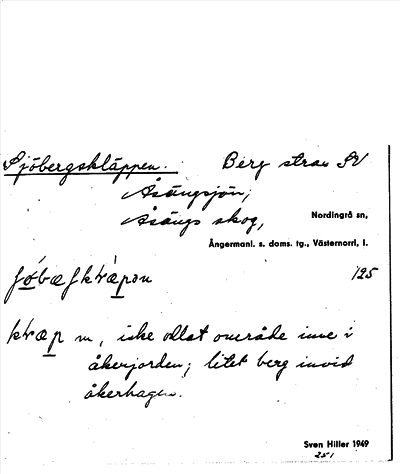 Sjöbergskläppen. Berg strax SV
Åsängsjön;
Åsängs skog, Nordingrå sn,
Ångermanl. s. doms. tg., Västernorrl. l.
125
m, icke odlat område inne i
åkerjorden; litet berg invid
åkerhagen.
Sven Hiller 1949
251